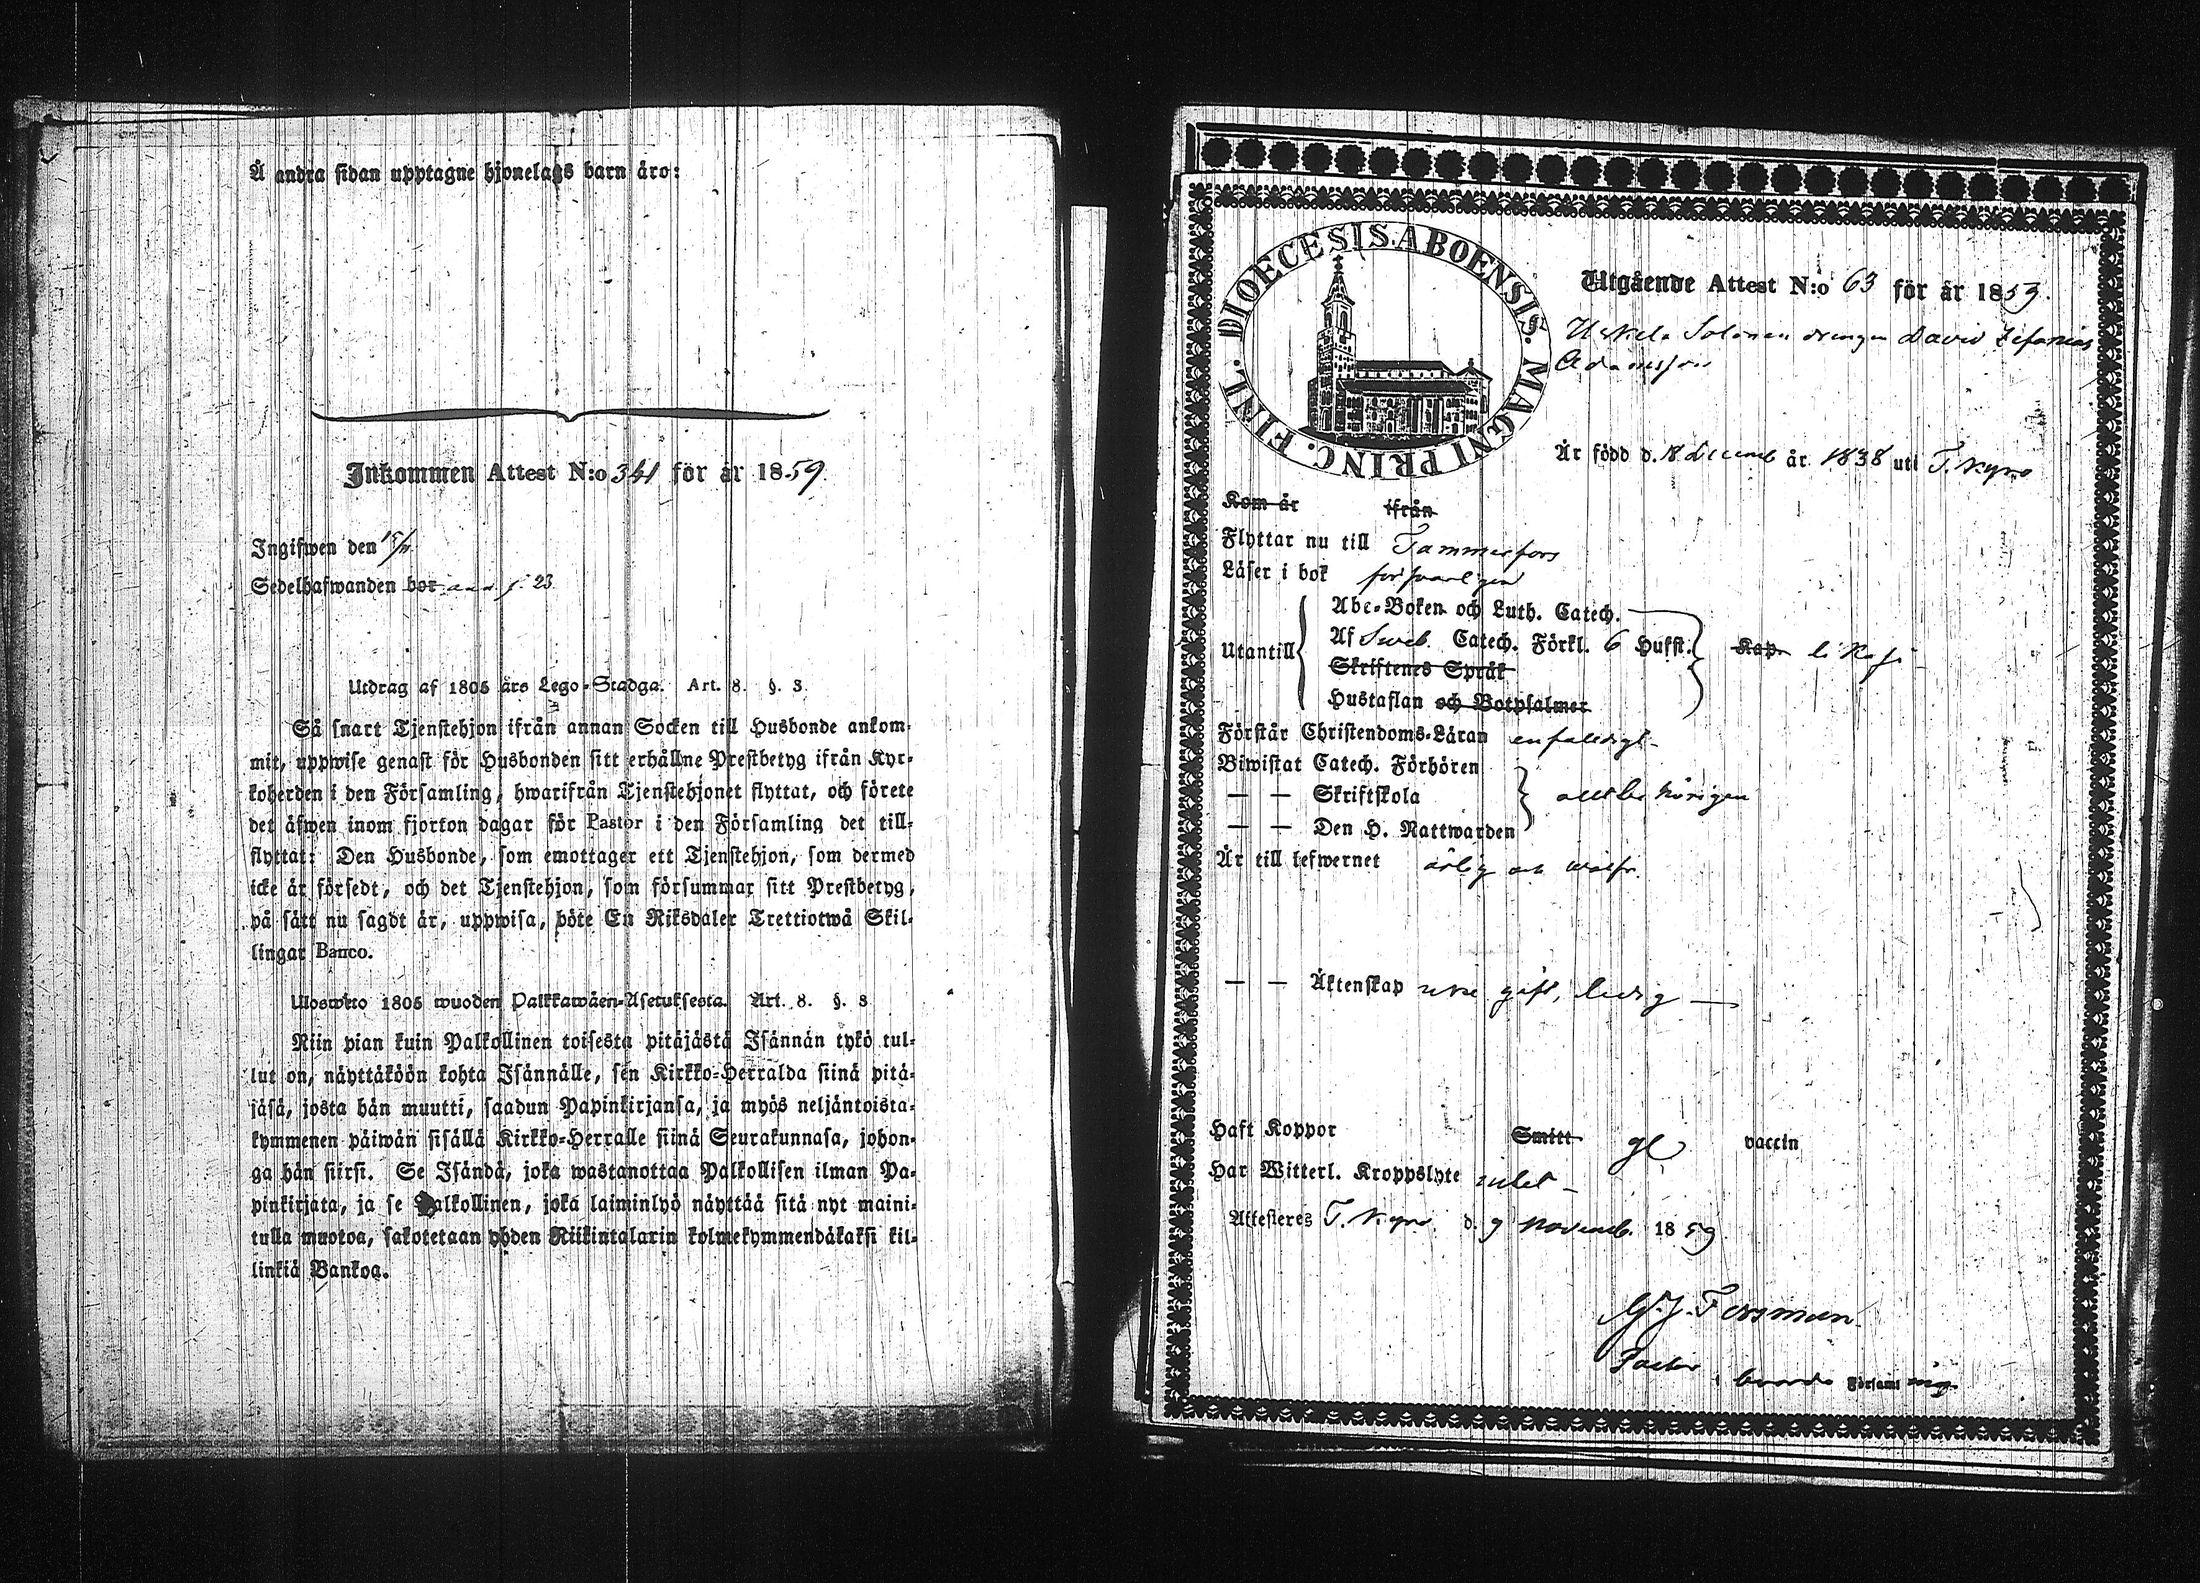 Å andra sidan upptagne hjonelags barn äro:
Inkommen Attest N:o 341 för år 1859
Ingifwen den 15/11
Sedelhafwanden bor 23
Utdrag af 1805 års Lego-Stadga. Art. 8. §. 3.
Så snart Tjenstehjon ifrån annan Socken till Husbonde ankom-
mit, uppwise genast för Husbonden sitt erhållne Prestbetyg ifrån Kyr-
koherden i den Församling, hwarifrån Tjenstehjonet flyttat, och förete
det äfwen inom fjorton dagar för Pastor i den Församling det till-
flyttat: Den Husbonde, som emottager ett Tjenstehjon, som dermed
icke är försedt, och det Tjenstehjon, som försummar sitt Prestbetyg,
på sätt nu sagdt är, uppwisa, böte En Riksdaler Trettiotwå Skil-
lingar Banco.
Uloswéto 1805 wuoden Palkkawäen-Asetuksesta. Art. 8. §. 3
Niin pian kuin Palkollinen toisesta pitäjästä Isännän tykö tul-
lut on, näyttäköön kohta Isännälle, sen Kirkko-Herralda siinä pitä-
jäsä, josta hän muutti, saadun Papinkirjansa, ja myös neljäntoista-
kymmenen päiwän sisällä Kirkko-Herralle siinä Seurakunnasa, johon-
ga hän siirsi. Se Isändä, joka wastanottaa Palkollisen ilman Pa-
pinkirjata, ja se Palkollinen, joka laiminlyö näyttää sitä nyt maini-
tulla muotoa, sakotetaan yhden Riikintalarin kolmekymmendäkaksi kil-
linkiä Bankoa.
DIOECESIS ABOENSIS. MAGNI PRINC. FINL.
Utgående Attest N:o 63 för år 1859.
drengen David Zefanias
Adamsson
Är född d. 18 decemb år 1838 uti T. Kyro
Kom år ifrån
Flyttar nu till Tammerfors
Läser i bok försvarligen
Utantill
Abc-Boken och Luth. Catech.
Af Sveb. Catech. Förkl. 6 Hufst. Kap.
Skriftenes Språk
Hustaflan och Botpsalmer
Förstår Christendoms-Läran enfaldigt
Biwistat Catech. Förhören
— — Skriftskola behörigen
— — Den H. Nattwarden
Är till lefwernet ärlig och wälfr.
— — Äktenskap icke gift, ledig —
Haft Koppor Smitt gl vaccin
Har Witterl. Kroppslyte intet —
Attesteres T. Kyro d. 9 novemb. 1859
G. J. Forsman
Pastor i berörde Församling